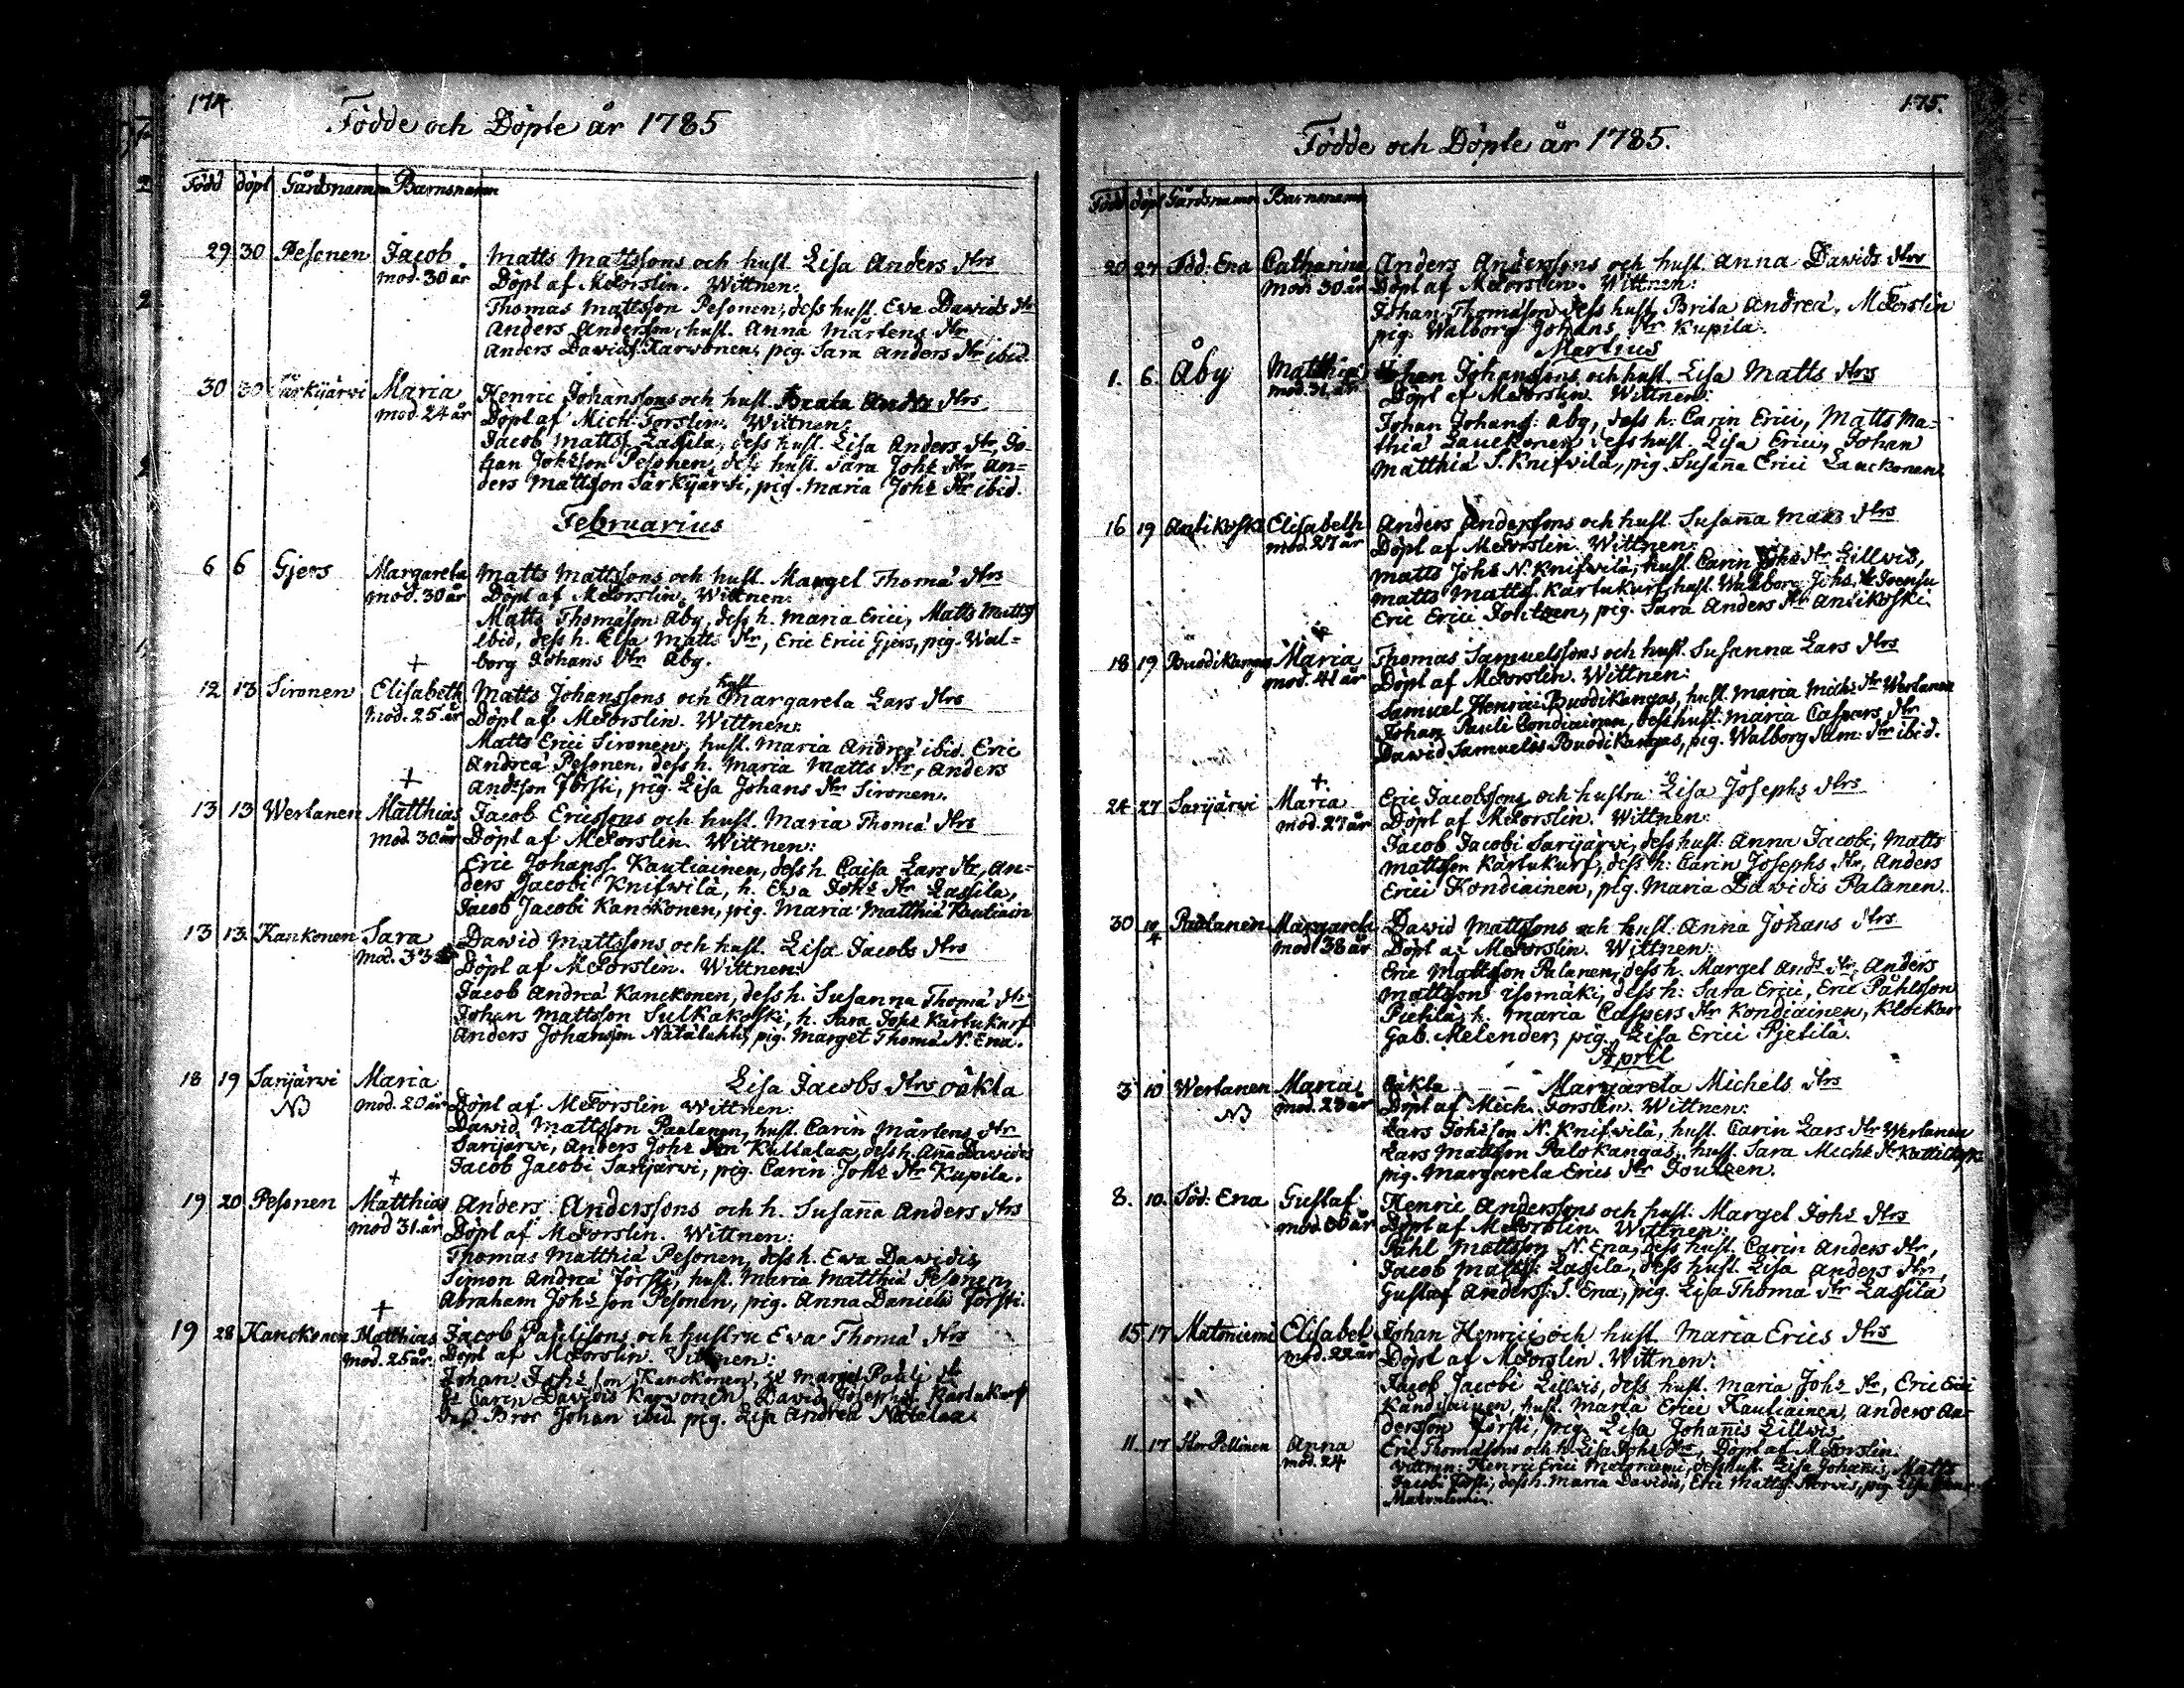 174
Födde och Döpte år 1785
Född döpt Gårdsnamn Barnsnamn
29 30 Pesonen Jacob Matts Mattssons och hust. Lisa Anders dtrs
mod. 30 år Döpt af M Forslin. Wittnen:
Thomas Mattsson Pesonen, dess hust. Eva Dawids dtr
Anders Andersson, hust. Anna Mårtens dtr
Anders Dawidss. Karvonen, pig. Sara Anders dtr ibid.
30 30 Särkijärvi Maria Henric Johanssons och hust. Beata Anders dtrs
mod. 24 år Döpt af Mich. Forslin. Wittnen:
Jacob Matts. Lassila, dess hust. Lisa Anders dtr, Jo-
han Johsson Pesonen, dess hust. Sara Johs dtr, An-
ders Mattsson Särkijärvi, pig. Maria Johs dtr ibid.
Februarius
6 6 Gjers Margareta Matts Mattssons och hust. Marget Thomæ dtrs
mod. 30 år Döpt af M Forslin. Wittnen:
Matts Thomasson Åby, dess h. Maria Erici, Matts Matts
ibid, dess h. Elsa Matts dtr, Eric Erici Gjers, pig. Wal-
borg Johans dtr Åby.
+
12 13 Sironen Elisabeth Matts Johanssons och hust Margareta Lars dtrs
mod. 25 år Döpt af M Forslin. Wittnen:
Matts Erici Sironen, hust. Maria Andreæ ibid. Eric
Andreæ Pesonen, dess h. Maria Matts dtr, Anders
Andsson Försti, pig. Lisa Johans dtr Sironen.
+
13 13 Wertanen Matthias Jacob Ericssons och hust. Maria Thomæ dtrs
mod. 30 år Döpt af M Forslin. Wittnen:
Eric Johanss. Kautiainen, dess h. Caisa Lars dtr, An-
ders Jacobi Knifwilä, h. Ewa Johs dtr Lassila,
Jacob Jacobi Kanckonen, pig. Maria Matthiæ Kautiain
13 13. Kankonen Sara Dawid Mattssons och hust. Lisa Jacobs dtrs
mod. 33 Döpt af M Forslin. Wittnen:
Jacob Andreæ Kanckonen, dess h. Susanna Thomæ dtr
Johan Mattsson Sulkakoski, h. Sara Johs Kärtukurf
Anders Johansson Natälahti, pig. Marget Thomæ N. Ena.
18 19 Sarijärvi Maria Lisa Jacobs dtrs oäkta
NB mod. 20 år Döpt af M Forslin Wittnen:
Dawid Mattsson Paalanen, hust. Carin Mårtens dtr
Sarijärvi, Anders Johs son Kullalax, dess h. Anna Davidis
Jacob Jacobi Sarijärvi, pig. Carin Johs dtr Kupila.
+
19 20 Pesonen Matthias Anders Anderssons och h. Susanna Anders dtrs
mod 31. år Döpt af M Forslin. Wittnen:
Thomas Matthiæ Pesonen, dess h. Ewa Dawidis,
Simon Andreæ Försti, hust. Maria Matthiæ Pesonen,
Abraham Johs son Pesonen, pig. Anna Daniels Försti.
+
19 28 Kanckonen Matthias Jacob Paulssons och hustru Ewa Thomæ dtrs
mod. 25 år. Döpt af M Forslin. Vittnen:
Johan Johs son Kanckonen, h. Marget Pauli dtr
h. Carin Davidis Karvonen, David Josephss. Kärtukurf
dess Bror Johan ibid pig. Lisa Andreæ Natälax.
175.
Födde och Döpte år 1785.
Född döpt Gårdsnamn Barnsnamn
20 27 Söd: Ena Catharina Anders Anderssons och hust. Anna Dawids dtrs
mod. 30 år Döpt af M Forslin. Wittnen:
Johan Thomasson dess hust. Brita Andreæ, M Forslin
pig. Walborg Johans dtr Kupila.
Martius
1. 6. Åby Matthias Johan Johanssons och hust. Lisa Matts dtrs
mod. 31 år Döpt af M Forslin. Wittnen:
Johan Johanss: Åby, dess h: Carin Erici, Matts Ma-
thiæ Lauckonen dess hust. Lisa Erici, Johan
Matthiæ S. Knifvilä, pig. Susanna Erici Lauckonen.
16 19 Antikoski Elisabeth Anders Anderssons och hust. Susanna Mats dtrs
mod. 27 år Döpt af M Forslin. Wittnen:
Matts Johs N. Knifvilä, hust. Carin Johs dtr Lillvis,
Matts Matts. Kärtukurf, hust. Walborg Johs. dtr Joensu
Eric Erici Joutzen, pig. Sara Anders dtr Antikoski
+
18 19 Buodikangas Maria Thomas Samuelssons och hust. Susanna Lars dtrs
mod. 41 år Döpt af M Forslin. Wittnen:
Samuel Henrici Buodikangas, hust. Maria Michs dtr Wertanen
Johan Pauli Condiainen, dess hust. Maria Caspers dtr
Dawid Samuelis Buodikangas, pig. Walborg Sam: dtr ibid.
+
24 27 Sarijärvi Maria Eric Jacobssons och hustru Lisa Josephs dtrs
mod. 27 år Döpt af M Forslin. Wittnen:
Jacob Jacobi Sarijärvi, dess hust: Anna Jacobi, Matts
Mattsson Kärtukurf, dess h: Carin Josephs dtr, Anders
Erici Kondiainen, pig. Maria Dawidis Palanen.
30 10/4 Paalanen Margareta Dawid Mattssons och hust. Anna Johans dtrs
mod 38 år Döpt af M Forslin. Wittnen:
Eric Mattsson Palanen, dess h. Marget Ands dtr, Anders
Mattsson Isomäki, dess h: Sara Erici, Eric Påhlsson
Pietilä, h. Maria Caspers dtr Kondiainen, Klockar
Gab. Melender, pig. Lisa Erici Pjetilä.
April
3 10 Wertanen Maria Oäkta - - Margareta Michels dtrs
NB mod. 23 år Döpt af Mich. Forslin. Wittnen:
Lars Johsson N. Knifvilä, hust. Carin Lars dtr Wertanen
Lars Mattsson Palokangas, hust. Sara Michs dtr
pig. Margareta Erics dtr Joutzen.
8. 10. Söd: Ena Gustaf Henric Anderssons och hust. Marget Johs dtrs
mod. år Döpt af M Forslin. Wittnen:
Påhl Mattsson N. Ena, dess hust. Carin Anders dtr,
Jacob Matts: Lassila, dess hust. Lisa Anders dtr,
Gustaf Anderss: S. Ena, pig. Lisa Thomæ dtr Lassila
15 17 Matoniemi Elisabet Johan Henrici och hust. Maria Erics dtrs
mod. 22 år Döpt af M Forslin. Wittnen:
Jacob Jacobi Lillvis, dess hust. Maria Johs dtr, Eric Erici
Kandiainen, hust. Maria Erici Kautiainen, Anders An-
dersson Försti, pig. Lisa Johannis Lillvis
11. 17 Stor Pellinen Anna Eric Thomassons och h. Lisa Johs dtr, Döpt af M Forslin.
mod. 24 Vittnen: Henric Erici Matoniemi, dess hust. Lisa Johannis, Matts
Jacobi Försti, dess h. Maria Davidis, Eric Matts: pig. Lisa
Matoniemi.